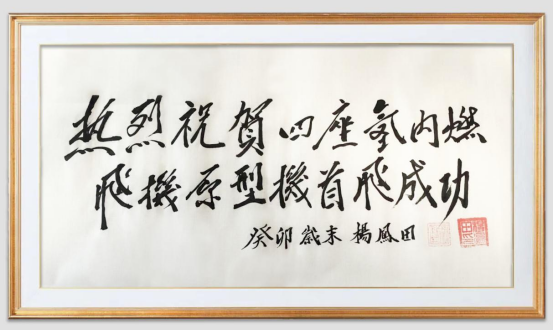 热烈祝贺四座氢内燃
飛機原型機首飛成功
癸卯歲末 楊鳳田